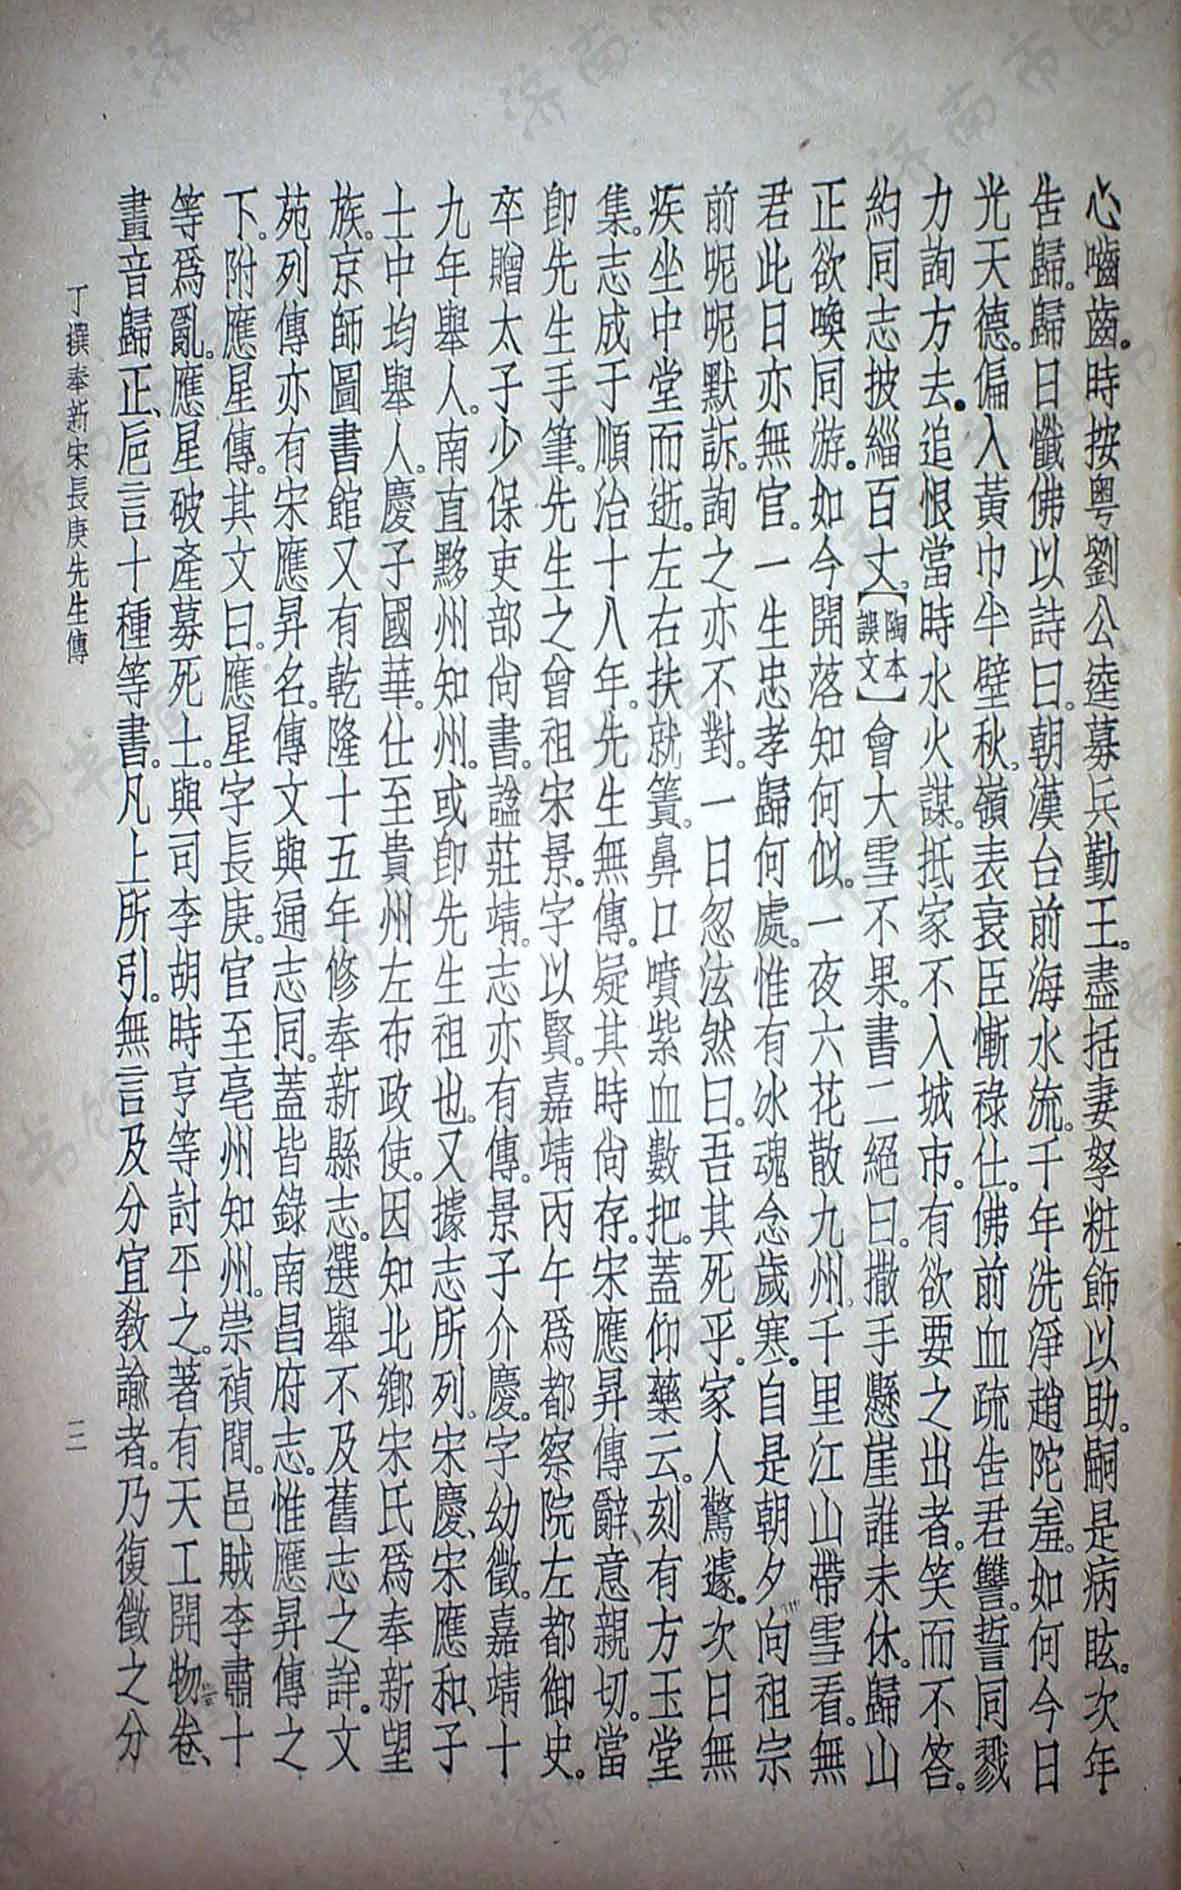 心嚙齒。時按粵劉公遠募兵勤王。盡括妻孥粧飾以助。嗣是病眩。次年
告歸。歸日懺佛以詩曰。朝漢台前海水流。千年洗淨趙陀羞。如何今日
光天德。偏入黃巾半壁秋。嶺表衰臣慚祿仕。佛前血疏告君讐。誓同戮
力詢方去。追恨當時水火謀。抵家不入城市。有欲要之出者。笑而不答。
約同志披緇百丈。【陶本誤文】會大雪不果。書二絕曰。撒手懸崖誰未休。歸山
正欲喚同游。如今開落知何似。一夜六花散九州。千里江山帶雪看。無
君此日亦無官。一生忠孝歸何處。惟有冰魂念歲寒。自是朝夕向祖宗
前呢呢默訴。詢之亦不對。一日忽泫然曰。吾其死乎。家人驚遽。次日無
疾坐中堂而逝。左右扶就簀。鼻口噴紫血數把。蓋仰藥云。刻有方玉堂
集。志成于順治十八年。先生無傳。疑其時尙存。宋應昇傳辭意親切。當
卽先生手筆。先生之曾祖宋景。字以賢。嘉靖丙午爲都察院左都御史。
卒贈太子少保吏部尙書。諡莊靖。志亦有傳。景子介慶。字幼徵。嘉靖十
九年舉人。南直黟州知州。或卽先生祖也。又據志所列。宋慶、宋應和、子
士中均舉人。慶子國華。仕至貴州左布政使。因知北鄉宋氏爲奉新望
族。京師圖書館又有乾隆十五年修奉新縣志。選舉不及舊志之詳。文
苑列傳亦有宋應昇名。傳文與通志同。蓋皆錄南昌府志。惟應昇傳之
下。附應星傳。其文曰。應星字長庚。官至亳州知州。崇禎間。邑賊李肅十
等爲亂。應星破產募死士。與司李胡時亨等討平之。著有天工開物卷、
畫音歸正、巵言十種等書。凡上所引。無言及分宜教諭者。乃復徵之分
丁撰奉新宋長庚先生傳
二